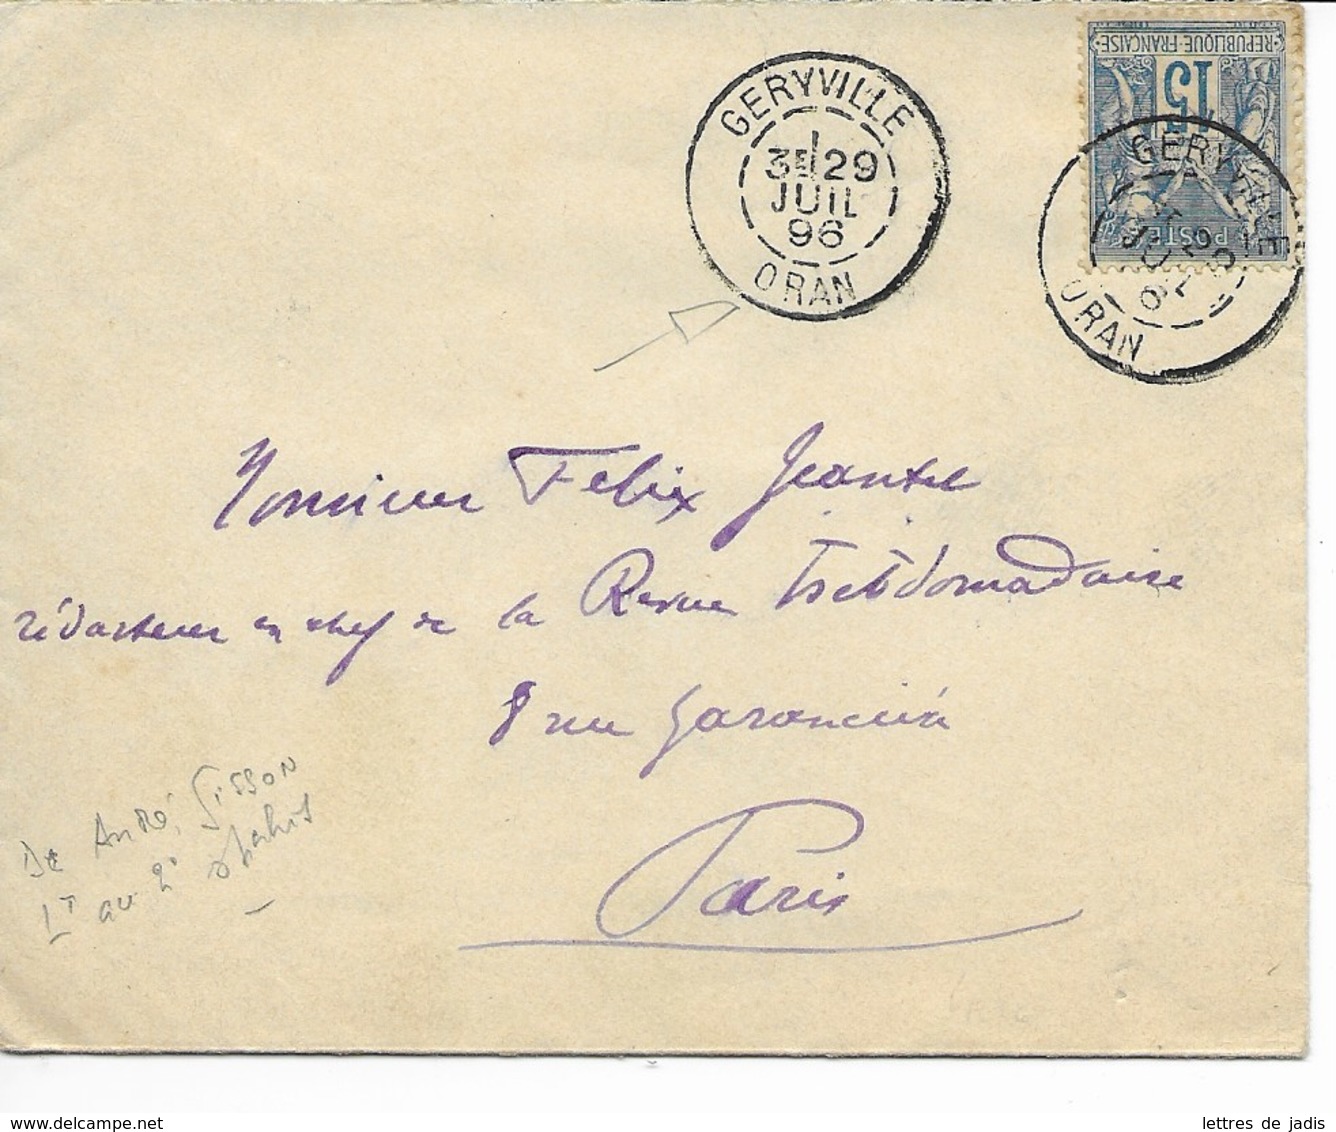 GERYVILLE
3E 29
JUIL
96
ORAN
REPUBLIQUE-FRANÇAISE
15
POSTE
GERYVILLE
29
JUIL
96
ORAN
Monsieur Felix Jeantet
rédacteur en chef de la Revue Hebdomadaire
8 rue Garancière
Paris
De André Gisson
Lt au 2e spahis
www.delcampe.net
lettres de jadis